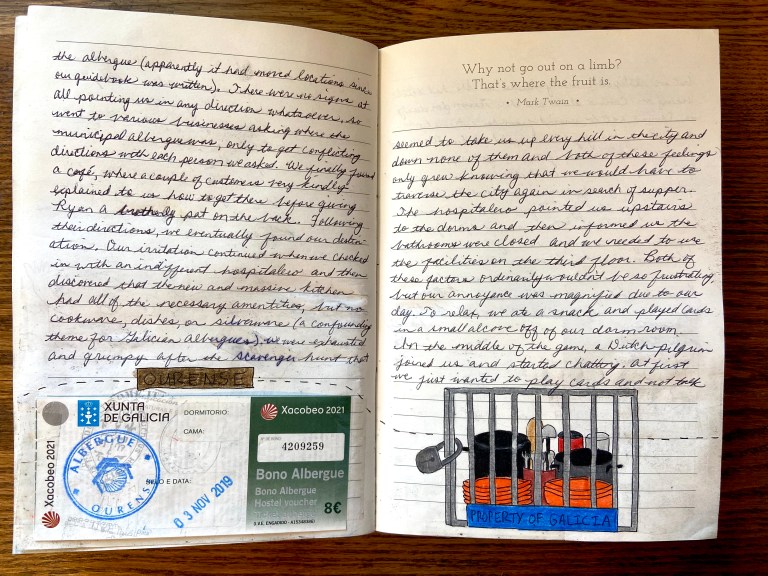 the albergue (apparently it had moved locations since
our guidebook was written). There were no signs at
all pointing us in any direction whatsoever, so
went to various businesses asking where the
municipal albergue was, only to get conflicting
directions with each person we asked. We finally found
a café, where a couple of customers very kindly
explained to us how to get there before giving
Ryan a brotherly pat on the back. Following
their directions, we eventually found our destin-
ation. Our irritation continued when we checked
in with an indifferent hospitalero and then
discovered that the new and massive kitchen
had all of the necessary amentities, but no
cookware, dishes, or silverware (a confounding
theme for Galician albergues). We were exhausted
and grumpy after the scavenger hunt that
OURENSE
XUNTA
DE GALICIA
DORMITORIO:
CAMA:
Xacobeo 2021
Xacobeo 2021
4209259
ALBERGUE
OURENSE
E DATA:
03 NOV 2019
Bono Albergue
Bono Albergue
Hostel voucher
8€
Why not go out on a limb?
That's where the fruit is.
• Mark Twain •
seemed to take us up every hill in the city and
down none of them and both of these feelings
only grew knowing that we would have to
traverse the city again in search of supper.
The hospitalero pointed us upstairs
to the dorms and then informed us the
bathrooms were closed and we needed to use
the facilities on the third floor. Both of
these factors ordinarily wouldn't be so frustrating,
but our annoyance was magnified due to our
day. To relax, we ate a snack and played cards
in a small alcove off of our dorm room.
In the middle of the game, a Dutch pilgrim
joined us and started chatting. At first
we just wanted to play cards and not talk
PROPERTY OF GALICIA